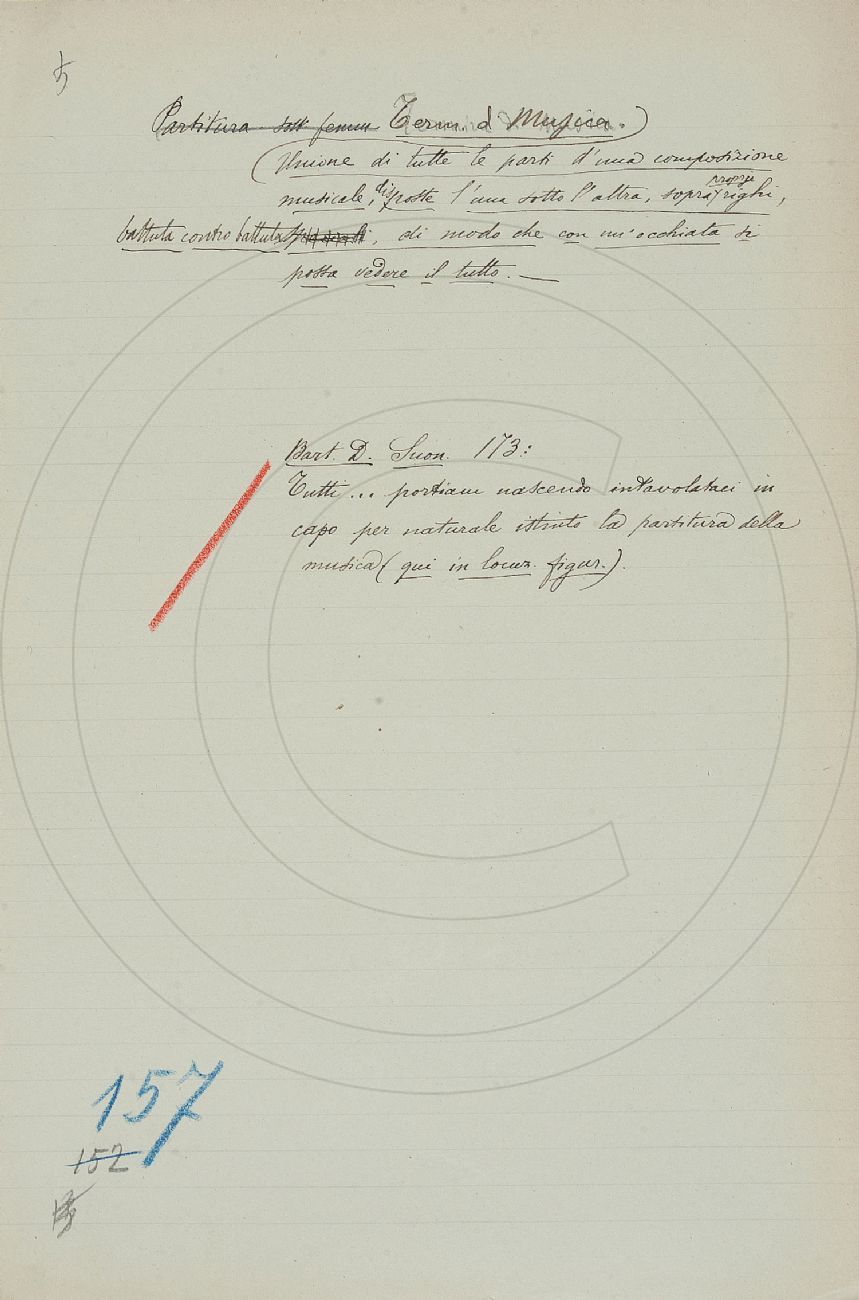 5
Partitura sost. femm. Term. d Musica.
(Unione di tutte le parti d'una composizione
musicale, disposte l'una sotto l'altra, sopra proprj righi,
battuta contro battuta, di modo che con un'occhiata si
possa vedere il tutto. —
Bart. D. Suon. 173:
Tutti... portiam nascendo intavolataci in
capo per naturale istinto la partitura della
musica (qui in locuz. figur.).
157
152